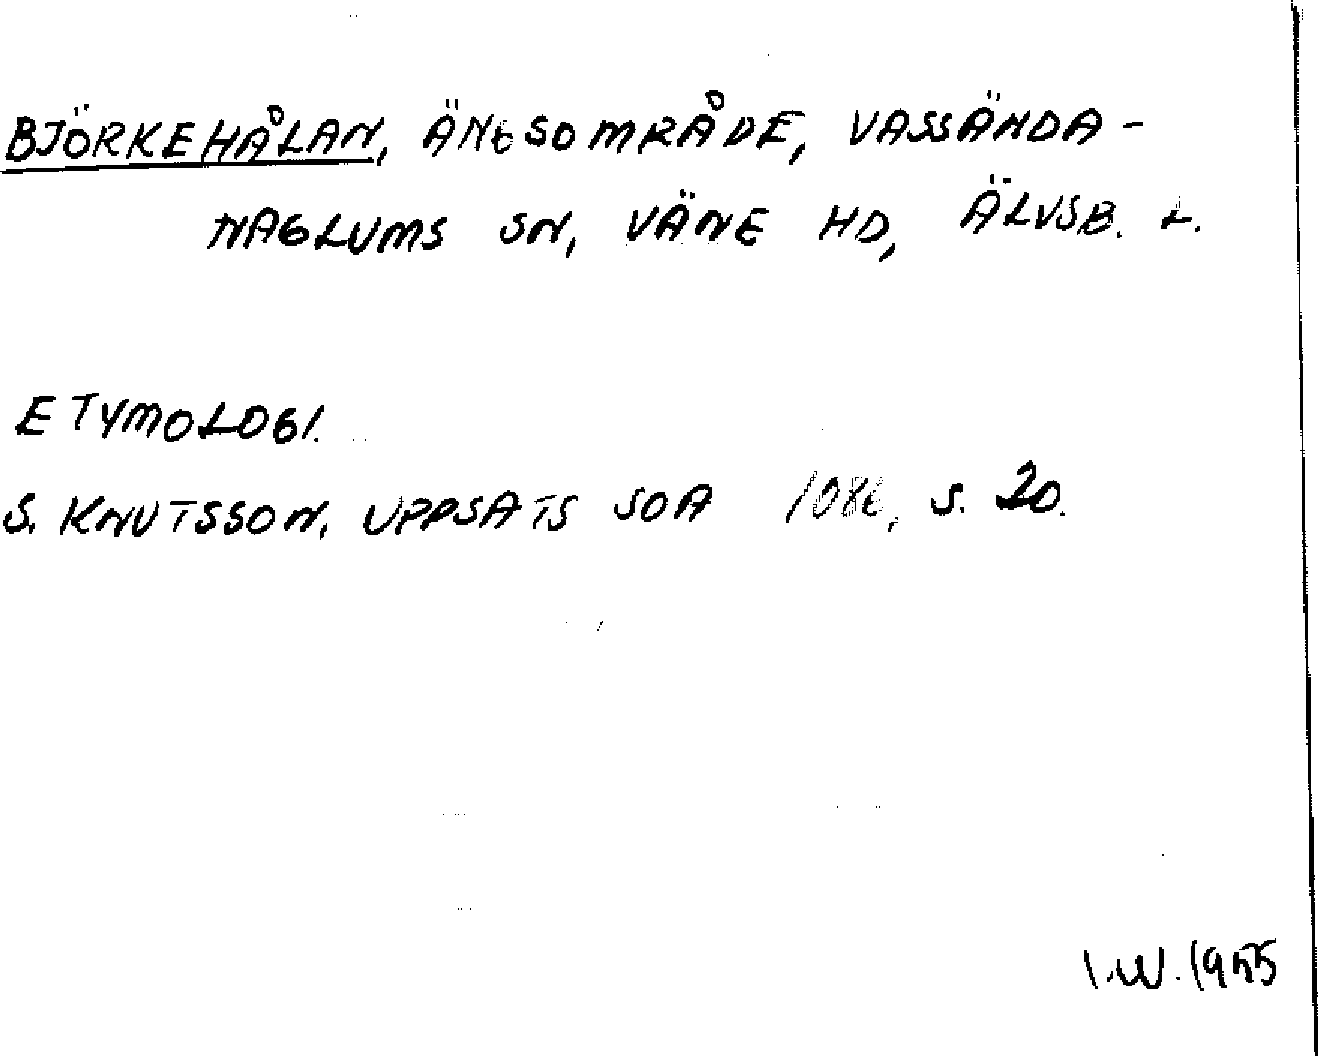 BJÖRKEHÅLAN, ÄNGSOMRÅDE, VASSÄNDA-
NAGLUMS SN, VÄNE HD, ÄLVSB. L.
ETYMOLOGI.
S. KNUTSSON, UPPSATS SOA 1086, S. 20.
I.W. 1955